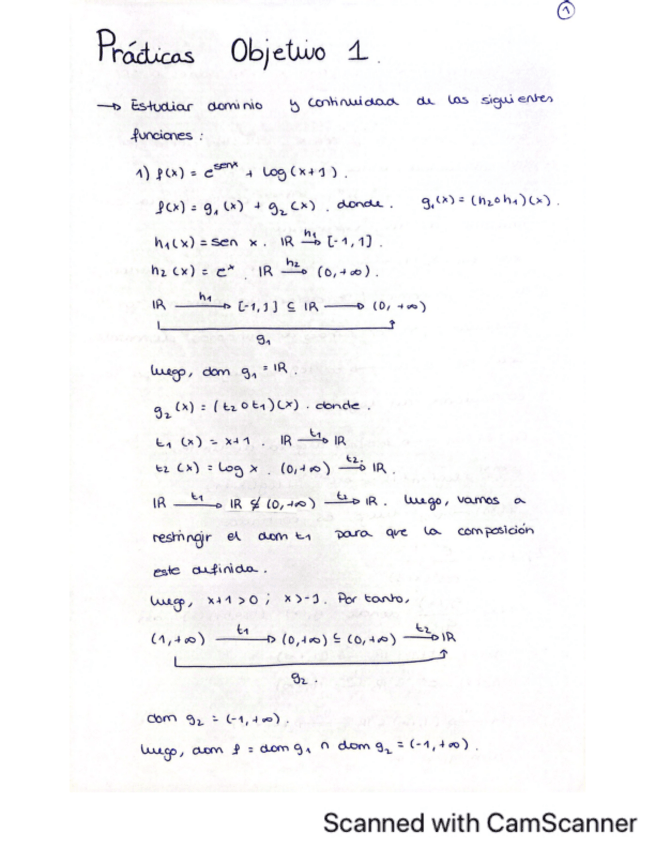 1
Prácticas Objetivo 1.
→ Estudiar dominio y continuidad de las siguientes
funciones :
1) f(x) = e^senx + log(x+1).
f(x) = g₁(x) + g₂(x). donde. g₁(x) = (h₂∘h₁)(x).
h₁(x) = sen x. IR →h₁ [-1,1].
h₂(x) = eˣ. IR →h₂ (0,+∞).
IR →h₁ [-1,1] ⊆ IR → (0,+∞)
g₁
luego, dom g₁ = IR.
g₂(x) = (t₂∘t₁)(x). donde.
t₁(x) = x+1. IR →t₁ IR
t₂(x) = log x. (0,+∞) →t₂. IR.
IR →t₁ IR ⊈ (0,+∞) →t₂ IR. luego, vamos a
restringir el dom t₁ para que la composición
este definida.
luego, x+1>0 ; x>-1. Por tanto,
(1,+∞) →t₁ (0,+∞) ⊆ (0,+∞) →t₂ IR
g₂.
dom g₂ = (-1,+∞).
luego, dom f = dom g₁ ∩ dom g₂ = (-1,+∞).
Scanned with CamScanner